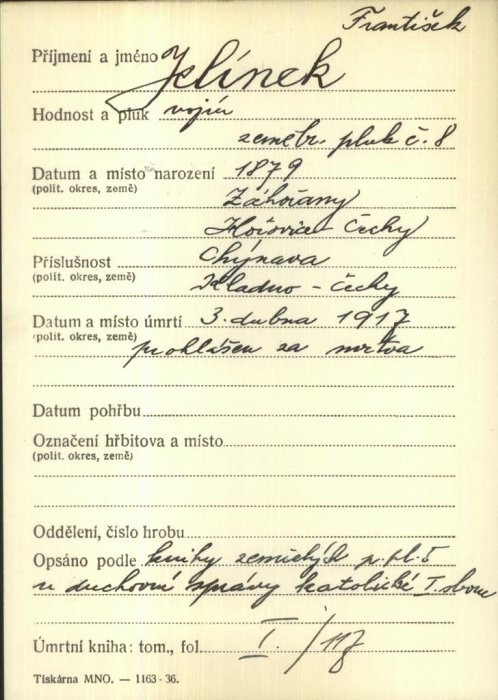 František
Příjmení a jméno Jelínek
Hodnost a pluk vojín
zeměbr. pluk č. 8
Datum a místo narození 1879
(polit. okres, země)
Záhořany
Hořovice - Čechy
Příslušnost Chyňava
(polit. okres, země)
Kladno - Čechy
Datum a místo úmrtí 3. dubna 1917
(polit. okres, země)
prohlášen za mrtva
Datum pohřbu
Označení hřbitova a místo
(polit. okres, země)
Oddělení, číslo hrobu
Opsáno podle knihy zemřelých p. pl. 5
u duchovní správy katolické I. sboru
Úmrtní kniha: tom., fol. I. / 117
Tiskárna MNO. — 1163-36.